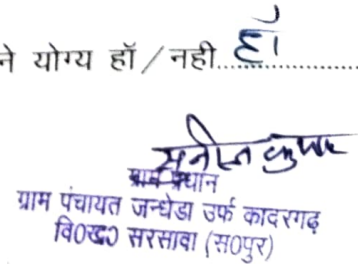 ने योग्य हॉ / नही.....हाँ.....
सुनील कुमार
ग्राम प्रधान
ग्राम पंचायत जन्धेडा उर्फ कादरगढ़
वि०ख० सरसावा (स०पुर)